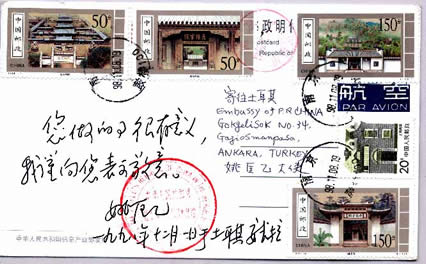 中国邮政
50分
CHINA
中国邮政
50分
中国邮政
150分
CHINA
航空
PAR AVION
20分
中国人民邮政
中国邮政
150分
CHINA
明信
ostcard
Republic of
寄往土耳其
Embassy of P.R CHINA
NO.34,
Gaziosmanpasa,
ANKARA, TURKEY
姚匡乙大使
您做的事很有意义,
我谨向您表示敬意。
姚匡乙
一九九八年十二月一日于土耳其安卡拉